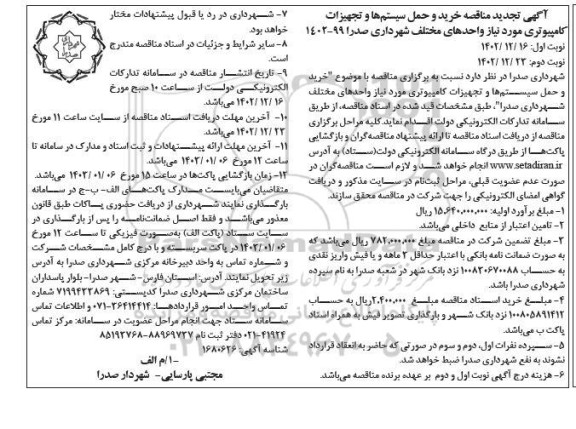 آگهی تجدید مناقصه خرید و حمل سیستم‌ها و تجهیزات
کامپیوتری مورد نیاز واحدهای مختلف شهرداری صدرا ۹۹-۱۴۰۲
نوبت اول: ۱۶ /۱۲ /۱۴۰۲
نوبت دوم: ۲۳ /۱۲ /۱۴۰۲
شهرداری صدرا در نظر دارد نسبت به برگزاری مناقصه با موضوع "خرید
و حمل سیستم‌ها و تجهیزات کامپیوتری مورد نیاز واحدهای مختلف
شهرداری صدرا"، طبق مشخصات قید شده در اسناد مناقصه، از طریق
سامانه تدارکات الکترونیکی دولت اقدام نماید. کلیه مراحل برگزاری
مناقصه از دریافت اسناد مناقصه تا ارائه پیشنهاد مناقصه‌گران و بازگشایی
پاکت‌ها از طریق درگاه سامانه الکترونیکی دولت(ستاد) به آدرس
www.setadiran.ir انجام خواهد شد و لازم است مناقصه‌گران در
صورت عدم عضویت قبلی، مراحل ثبت‌نام در سایت مذکور و دریافت
گواهی امضای الکترونیکی را جهت شرکت در مناقصه محقق سازند.
۱- مبلغ برآورد اولیه: ۱۵،۶۴۰،۰۰۰،۰۰۰ ریال
۲- تامین اعتبار از منابع داخلی می‌باشد.
۳- مبلغ تضمین شرکت در مناقصه مبلغ ۷۸۲،۰۰۰،۰۰۰ ریال می‌باشد که
به صورت ضمانت نامه بانکی با اعتبار حداقل ۲ ماهه و یا فیش واریز نقدی
به حساب ۱۰۰۸۲۰۶۷۰۰۸۸ نزد بانک شهر در شعبه صدرا به نام سپرده
شهرداری صدرا باشد.
۴- مبلغ خرید اسناد مناقصه مبلغ ۲،۴۰۰،۰۰۰ ریال به حساب
۱۰۰۸۰۵۸۹۱۴۱۲ نزد بانک شهر و بارگذاری تصویر فیش به همراه اسناد
پاکت ب می‌باشد.
۵- سپرده نفرات اول، دوم و سوم در صورتی که حاضر به انعقاد قرارداد
نشوند به نفع شهرداری صدرا ضبط خواهد شد.
۶- هزینه درج آگهی نوبت اول و دوم بر عهده برنده مناقصه می‌باشد.
۷- شهرداری در رد یا قبول پیشنهادات مختار
خواهد بود.
۸- سایر شرایط و جزئیات در اسناد مناقصه مندرج
است.
۹- تاریخ انتشار مناقصه در سامانه تدارکات
الکترونیکی دولت از ساعت ۱۰ صبح مورخ
۱۶ /۱۲ /۱۴۰۲ می‌باشد.
۱۰- آخرین مهلت دریافت اسناد مناقصه از سایت ساعت ۱۱ مورخ
۲۳ /۱۲ /۱۴۰۲ می‌باشد.
۱۱- آخرین مهلت ارائه پیشنهادات و ثبت اسناد و مدارک در سامانه تا
ساعت ۱۲ مورخ ۰۶ /۰۱ /۱۴۰۳ می‌باشد.
۱۲- زمان بازگشایی پاکت‌ها در ساعت ۱۵ مورخ ۰۶ /۰۱ /۱۴۰۳ می‌باشد.
متقاضیان می‌بایست مدارک پاکت‌های الف- ب-ج در سامانه
بارگذاری نمایند شهرداری از دریافت حضوری پاکات طبق قانون
معذور می‌باشد و فقط اصل ضمانت‌نامه را پس از بارگذاری در
سایت ستاد (پاکت الف) به‌صورت فیزیکی تا ساعت ۱۲ مورخ
۱۴۰۳/۰۱/۰۶ در پاکت سربسته و با درج کامل مشخصات شرکت
و شماره تماس به واحد دبیرخانه مرکزی شهرداری صدرا به آدرس
زیر تحویل نمایند. آدرس: استان فارس- شهر صدرا- بلوار پاسداران
ساختمان مرکزی شهرداری صدرا کدپستی: ۷۱۹۹۴۲۲۸۶۹ شماره
تماس واحد امور قراردادها: ۳۶۴۱۴۴۱۴-۰۷۱ و اطلاعات تماس
سامانه ستاد جهت انجام مراحل عضویت در سامانه: مرکز تماس
۴۱۹۳۴-۰۲۱ دفتر ثبت نام ۸۸۹۶۹۷۳۷- ۸۵۱۹۳۷۶۸
شناسه آگهی: ۱۶۸۰۶۲۶
۱/م الف
مجتبی پارسایی- شهردار صدرا